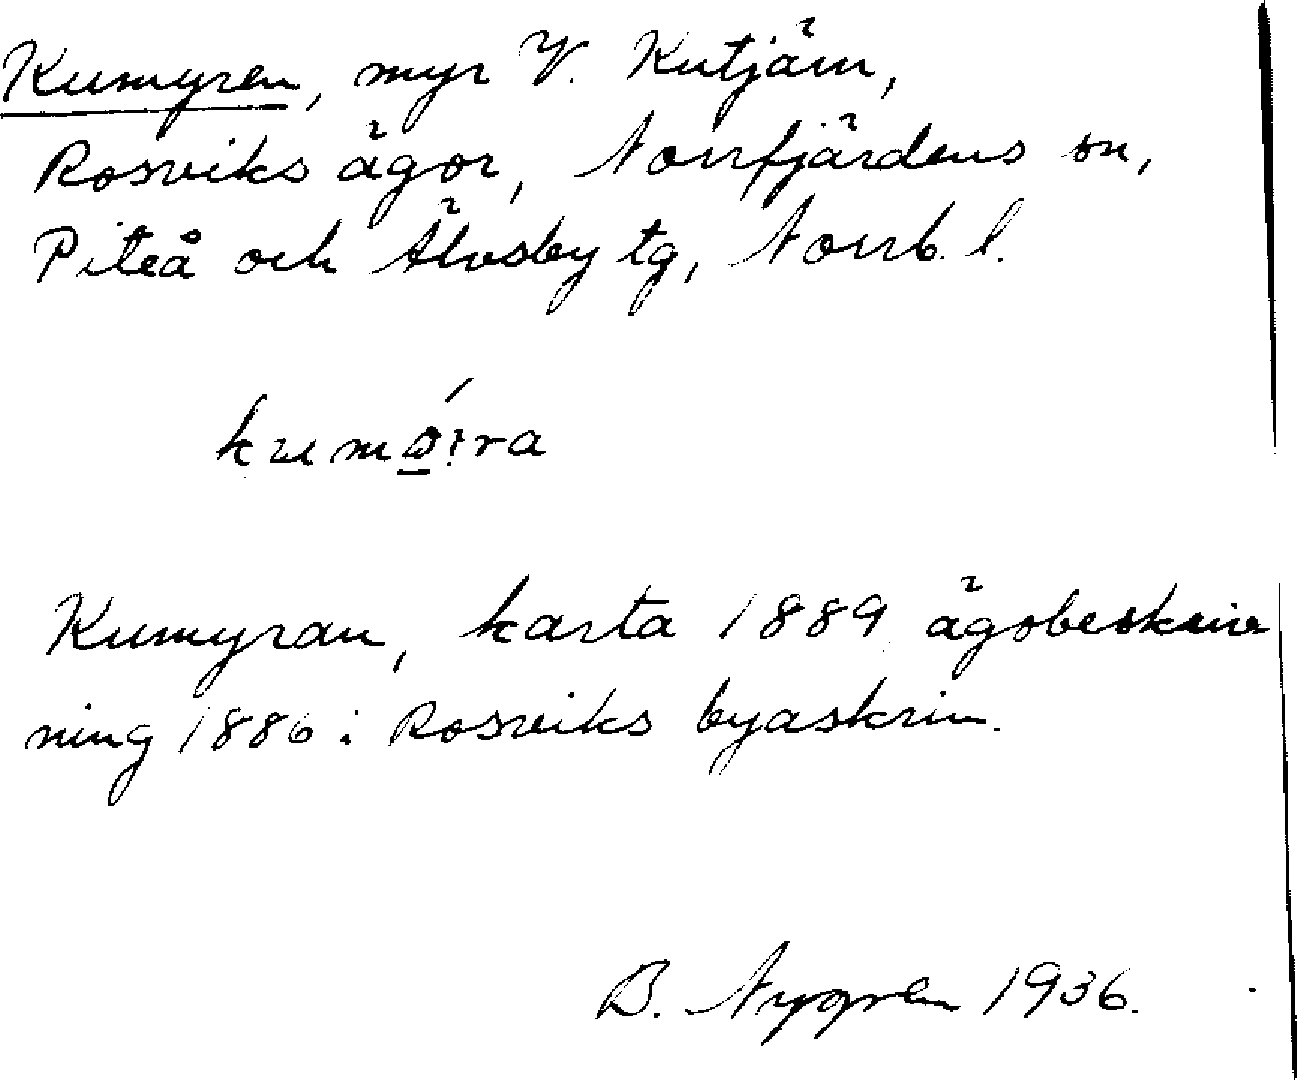 Kumyren, myr V. Kutjärn,
Rosviks ägor, Norrfjärdens sn,
Piteå och Älvsby tg, Norrb. l.
kumǿ̲ːra
Kumyran, karta 1889 ägobeskriv
ning 1886 i Rosviks byaskrin.
B. Nygren 1936.